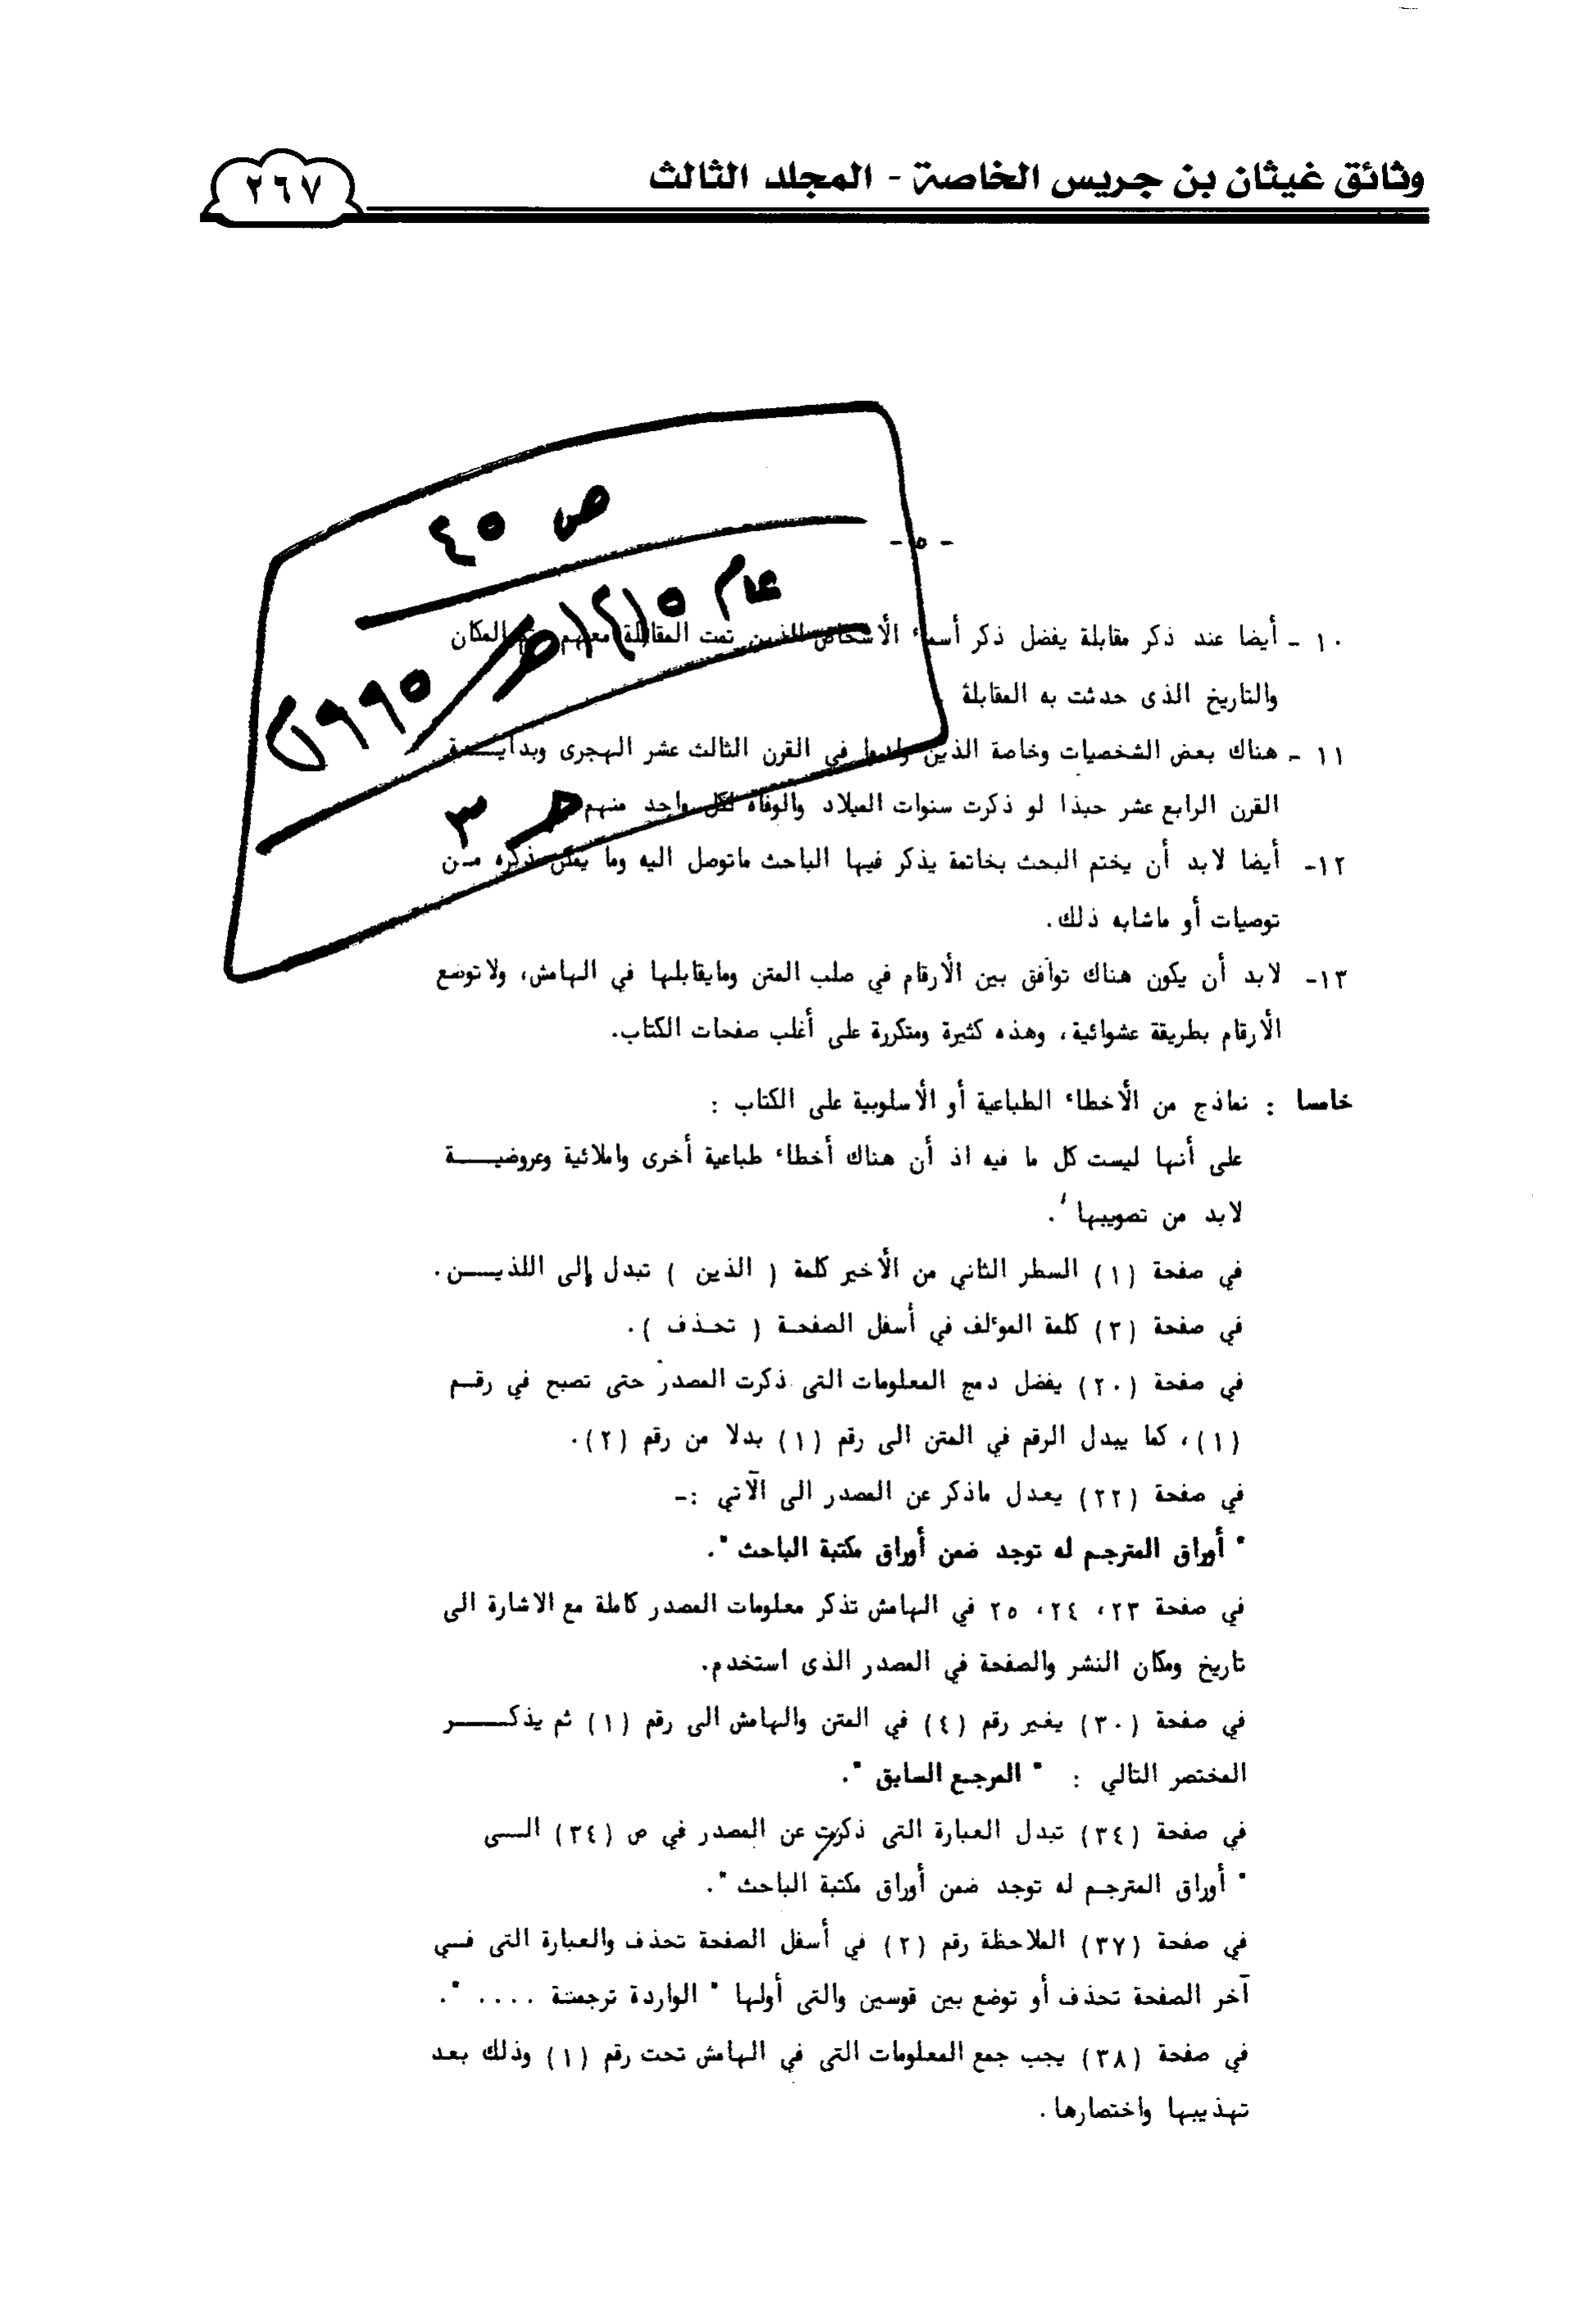 وثائق غيثان بن جريس الخاصة - المجلد الثالث
٢٦٧
ص ٤٥
عام ١٤١٥هـ/
١٩٩٥م
حـ ٣
- ٥ -
١٠ - أيضا عند ذكر مقابلة يفضل ذكر أسماء الأشخاص الذين تمت المقابلة معهم ثم المكان
والتاريخ الذى حدثت به المقابلة
١١ - هناك بعض الشخصيات وخاصة الذين ولدوا في القرن الثالث عشر الهجرى وبدايـــة
القرن الرابع عشر حبذا لو ذكرت سنوات الميلاد والوفاة لكل واحد منهم
١٢- أيضا لابد أن يختم البحث بخاتمة يذكر فيها الباحث ماتوصل اليه وما يمكن ذكره مـن
توصيات أو ماشابه ذلك.
١٣- لابد أن يكون هناك توافق بين الأرقام في صلب المتن ومايقابلها في الهامش، ولاتوضع
الأرقام بطريقة عشوائية، وهذه كثيرة ومتكررة على أغلب صفحات الكتاب.
خامسا : نماذج من الأخطاء الطباعية أو الأسلوبية على الكتاب :
على أنها ليست كل ما فيه اذ أن هناك أخطاء طباعية أخرى واملائية وعروضيـــة
لابد من تصويبها .
في صفحة (١) السطر الثاني من الأخير كلمة ( الذين ) تبدل إلى اللذيـــن.
في صفحة (٣) كلمة المؤلف في أسفل الصفحة ( تحـذف ).
في صفحة (٢٠) يفضل دمج المعلومات التى ذكرت المصدر حتى تصبح في رقـم
(١)، كما يبدل الرقم في المتن الى رقم (١) بدلا من رقم (٢).
في صفحة (٢٢) يعدل ماذكر عن المصدر الى الآتي :-
" أوراق المترجم له توجد ضمن أوراق مكتبة الباحث ".
في صفحة ٢٣، ٢٤، ٢٥ في الهامش تذكر معلومات المصدر كاملة مع الاشارة الى
تاريخ ومكان النشر والصفحة في المصدر الذى استخدم.
في صفحة (٣٠) يغير رقم (٤) في المتن والهامش الى رقم (١) ثم يذكـــر
المختصر التالي : " المرجع السابق ".
في صفحة (٣٤) تبدل العبارة التى ذكرت عن المصدر في ص (٣٤) الــى
" أوراق المترجم له توجد ضمن أوراق مكتبة الباحث ".
في صفحة (٣٧) الملاحظة رقم (٢) في أسفل الصفحة تحذف والعبارة التى فـي
آخر الصفحة تحذف أو توضع بين قوسين والتى أولها " الواردة ترجمتة .... ".
في صفحة (٣٨) يجب جمع المعلومات التى في الهامش تحت رقم (١) وذلك بعد
تهذيبها واختصارها.